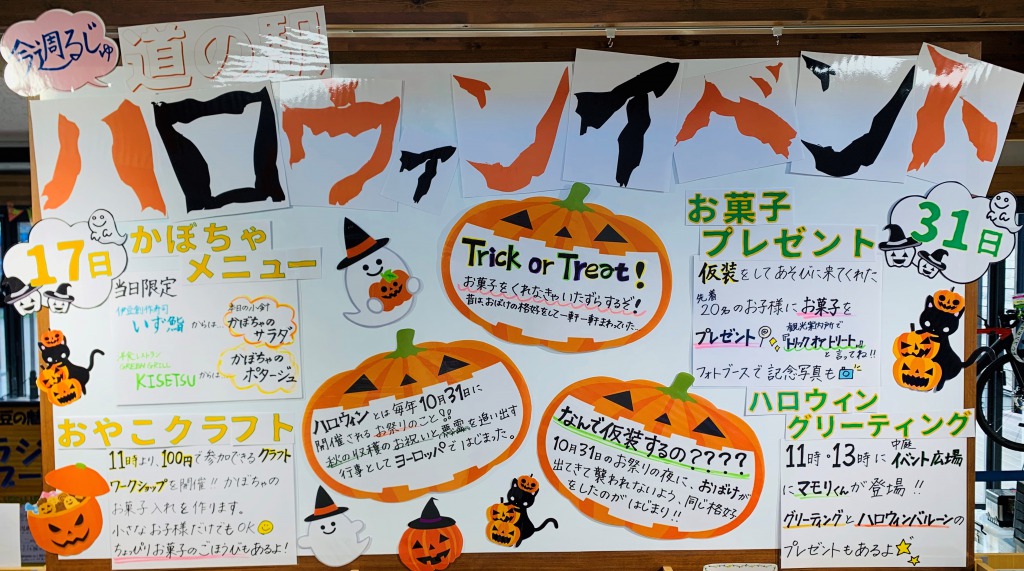 今週るじゅ
道の駅
ハロウィンイベント
17日
かぼちゃ
メニュー
当日限定
伊豆創作寿司
いず鮨 からは…
本日の小針
かぼちゃの
サラダ
洋食レストラン
GARDEN GRILL
KISETSU からは…
かぼちゃの
ポタージュ
おやこクラフト
11時より、100円で参加できるクラフト
ワークショップを開催!! かぼちゃの
お菓子入れを作ります。
小さなお子様だけでもOK
ちょっぴりお菓子のごほうびもあるよ!
Trick or Treat!
お菓子をくれなきゃいたずらするぞ!
昔は、おばけの格好をして一軒一軒まわっていた…
ハロウィンとは毎年10月31日に
開催されるお祭りのこと!!
秋の収穫のお祝いと悪霊を追い出す
行事としてヨーロッパではじまった。
なんで仮装するの????
10月31日のお祭りの夜に、おばけが
出てきて襲われないよう、同じ格好
をしたのがはじまり!!
31日
お菓子
プレゼント
仮装をしてあそびに来てくれた
先着
20名のお子様にお菓子を
プレゼント
観光案内所で
『トリックオアトリート』
と言ってね!!
フォトブースで記念写真も
ハロウィン
グリーティング
11時・13時に 中庭 イベント広場
にマモリくんが登場!!
グリーティングとハロウィンバルーンの
プレゼントもあるよ